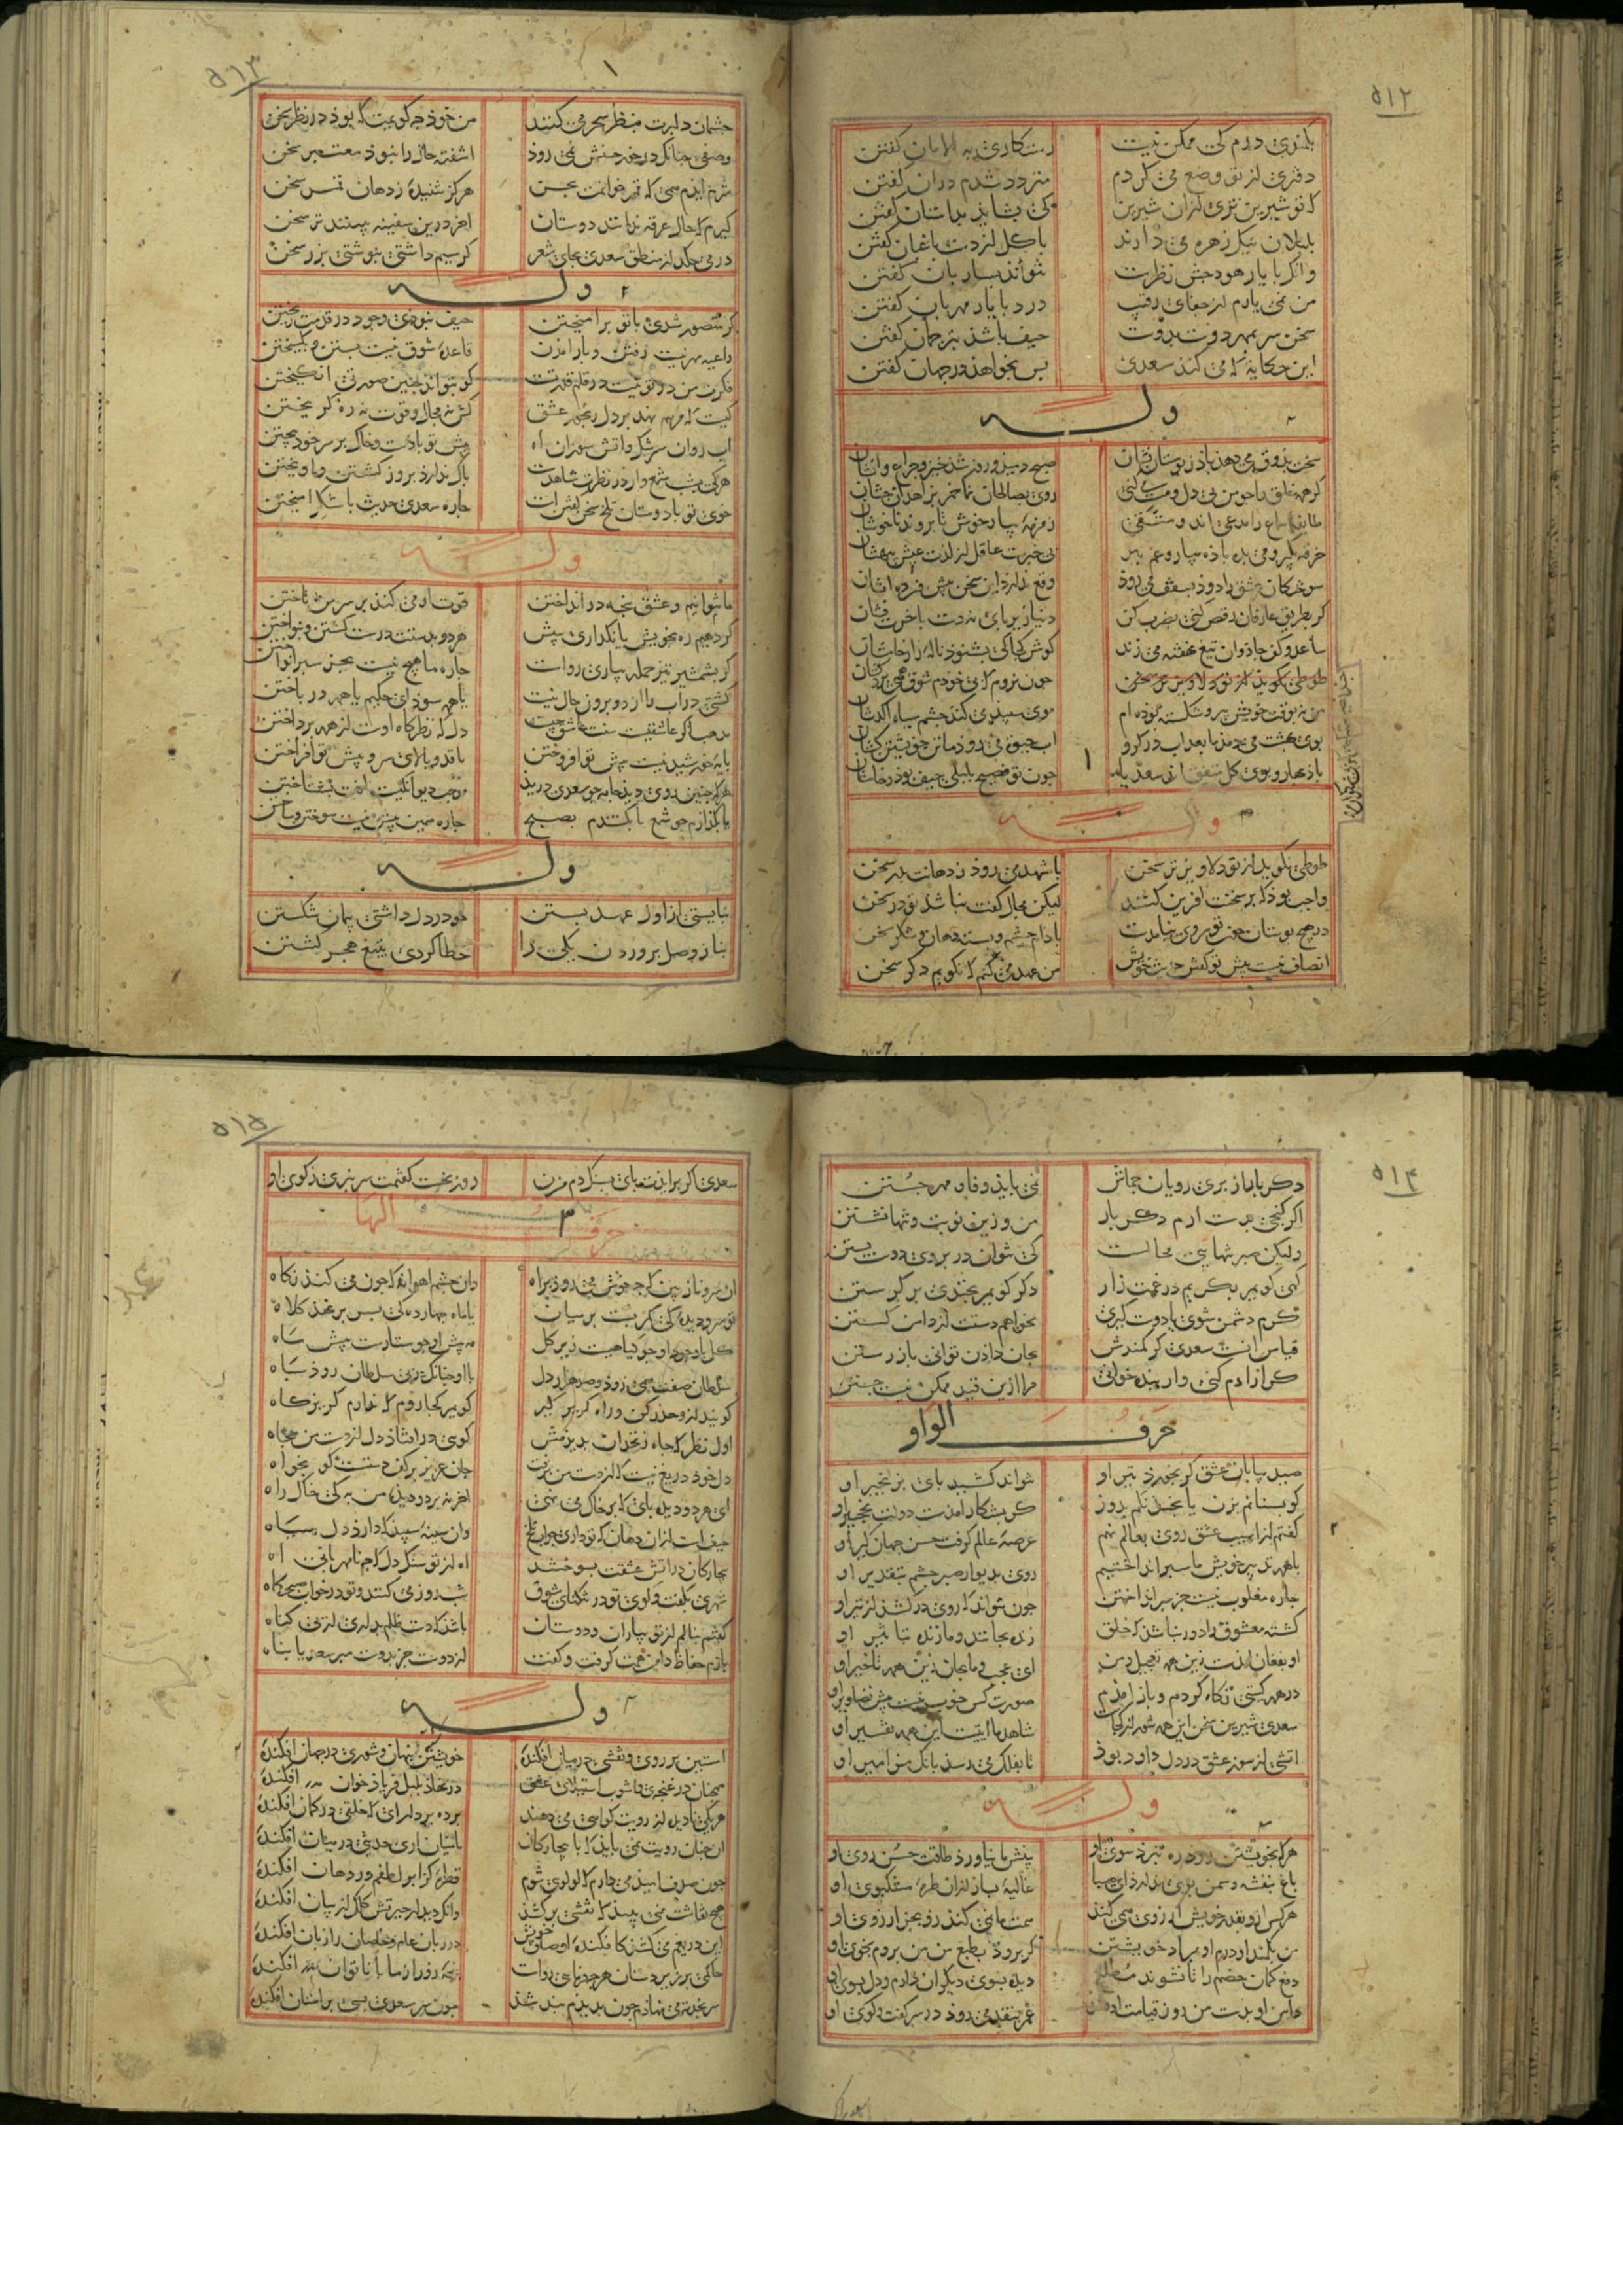 ۵۱۲
بکنری دردم کی ممکن نیست
رستکاری به الامان کفتن
دفتری از تو وضع می کردم
متردد شدم دران کفتن
که تو شیرین تری ازان شیرین
کی بشاید بداستان کفتن
بلبلان نیک زهره می دارند
با کل از دست باغبان کفتن
واکر با یار هودجش نظرست
نتواند بساربان کفتن
من نمی یارم از جفای رقیب
درد با یار مهربان کفتن
سخن سر بمهر دوست بدوست
حیف باشد بترجمان کفتن
این حکایة که می کند سعدی
بس بخواهند در جهان کفتن
وله
سخت بذوق می دهد باذ ز بوستان نشان
صبح دمیذ و روز شد خیز و چراغ وانشان
کر همه خلق را چو من بی دل و مست می کنی
روی بصالحان نما خمر بزاهدان چشان
طایفه سماع را عیب کنند و عشق
زمزمه بیار خوش تا بروند ناخوشان
خرقه بکیر و می بده باذه بیار و غم ببر
بی خبرست عاقل از لذت عیش بیهشان
سوختکان عشق را دوذ بسقف می روذ
وقع ندارد این سخن پیش فسرده اتشان
کر بطریق عارفان رقص کنی بضرب کن
دنیا زیر پای نه دست باخرت فشان
کوش کجا کی بشنوذ ناله زار خامشان
طوطی نکوید از تو دلاویزتر سخن
چون بروم که بی خودم شوق همی برد کشان
من نه بوقت خویشتن پیر و شکسته بوذه ام
موی سپید می کند چشم سیاه اکدشان
بوی بهشت می دمد ما بعذاب در کرو
اب حیوة می روذ ما تن خویشتن کشان
باذ بهار و بوی کل متفق اند سعدیا
چون تو فصیح بلبلی حیف بوذ ز خامشان
وله
طوطی نکوید از تو دلاویزتر سخن
با شهد می روذ ز دهانت بدر سخن
واجب بوذ که بر سخنت افرین کنند
لیکن مجال کفت نباشد تو در سخن
در هیچ بوستان چو تو سروی نیامدست
باذام چشم و بسته دهان و شکر سخن
انصاف نیست پیش تو کفتن حدیث خویش
من عهد می کنم که نکویم دکر سخن
۵۱۳
چشمان دلبرت بنظر سحر می کنند
من خوذ چه کویمت که بوذ در نظر سخن
وصفی چنانک در خور حسنش نمی روذ
اشفته حال را نبوذ معتبر سخن
شرم ایذم همی که قمر خوانمت بحسن
هرکز شنیده ز دهان قمر سخن
کیرم که حال غرقه ندانند دوستان
اخر درین سفینه ببینند تر سخن
در می چکد از منطق سعدی بجای شعر
کر سیم داشتی بنوشتی بزر سخن
وله
کر متصور شدی با تو برامیختن
حیف نبوذی وجود در قدمت ریختن
فکرت من در تو نیست در قلم قدرتست
کو بتواند چنین صورتی انکیختن
کیست که مرهم نهد بر دل ریجور عشق
کش نه مجال وقوف نه ره کریختن
اب روان سرشک واتش سوزان اه
پیش تو باذست و خاک بر سر خوذ بیختن
هر کی بشب شمع وار در نظر شاهدست
باک ندارذ بروز کشتن واویختن
خوی تو با دوستان تلخ سخن کفتن است
چاره سعدی حدیث با شکر امیختن
وله
ما نتوانیم و عشق پنجه در انداختن
قوت او می کند بر سر من تاختن
کر دهیم ره بخویش یا نکذاری بپیش
هر دو بدستت درست کشتن و بنواختن
کر بشمشیر تیز حمله بیاری رواست
چاره ما هیچ نیست بجز سپر انداختن
کشتی در اب را از دو برون حال نیست
یا همه سوذ ای حکیم یا همه در باختن
مذهب اکر عاشقیست سنت عشاق چیست
دل که نظرکاه اوست از همه برداختن
بایه خورشیذ نیست پیش تو افروختن
یا قد و بالای سرو پیش تو افراختن
هر که چنین روی دیذ جامه چو سعدی دریذ
موجب دیوانکیست افت بشناختن
یا بکذارم چو شمع یا بکشندم بصبح
چاره همین بیش نیست سوختن و ساختن
وله
نبایستی از اول عهد بستن
چو در دل داشتی پیمان شکستن
بناز وصل پروردن یکی را
خطا کردی بتیغ هجر کشتن
۵۱۴
دکر بار از پری رویان جماش
نمی باید وفا و مهر جستن
اکر کنجی بدست ارم دکر بار
من و زین نوبت و تنها نشستن
ولیکن صبر تنهایی محالست
کی نتوان در بروی دوست بستن
همی کویم بکریم در غمت زار
دکر کویم بخندی بر کرستن
کرم دشمن شوی یا دوست کیری
نخواهم دستت از دامن کسستن
قیاس انست سعدی کز کمندش
بجان دادن توانی باز رستن
کر ازادم کنی وار بنده خوانی
مرا ازین قید ممکن نیست جستن
حرف الواو
صید بیابان عشق کر بخورذ تیر او
نتواند کشید پای ز زنجیر او
کو بسنانم بزن یا بخدنکم بدوز
کر بشکار امدست دولت نخجیر او
کفتم از اسیب عشق روی بعالم نهم
عرصه عالم کرفت حسن جهان کیر او
با همه تدبیر خویش ما سپر انداختیم
روی بدیوار صبر چشم بتقدیر او
چاره مغلوب نیست جز سپر انداختن
چون نتواند که روی درکشد از تیر او
کشته معشوق را دور نباشد که خلق
زنده بجانند و ما زنده بتاثیر او
او بفغان امدست زین همه تعجیل من
ای عجب و ما بجان زین همه تاخیر او
در همه کیتی نکاه کردم و باز امدم
صورت کس خوب نیست پیش تصاویر او
سعدی شیرین سخن این همه شور از کجاست
شاهد ما ایتیست این همه تفسیر او
اتشی از سوز عشق در دل داود بوذ
تا بفلک می رسد بانک مزامیر او
وله
هر که بخویشتن روذ ره نبرذ بسوی او
بینش ما نیاورذ طاقت حسن روی او
باغ بنفشه و سمن بوی ندارذ ای صبا
غالیه بساز ازان طره مشکبوی او
هر کس از و بقدر خویش ارزوی همی کند
همت ما نمی کند زو بجز ارزوی او
من بکمند او درم او بمراد خویشتن
کر بروذ بطبع من من بروم بخوی او
دفع کمان خصم را تا نشوند مطلع
دیده بسوی دیکران دارم و دل بسوی او
دامن او بدست من روز قیامت
عمر بنقد می روذ در سر کفت و کوی او
۵۱۵
سعدی اکر برایذت پای بسنک دم مزن
روز نخست کفتمت سر نبری ز کوی او
حرف الها
ان سرو ناز بین که چه خوش می روذ براه
وان چشم اهوانه که چون می کند نکاه
تو سرو دیده کی کمر بست بر میان
یا ماه چهارده کی بسر بر نهذ کلاه
کل با وجود او چو کیاهست زیر کل
مه پیش او چو ستارست پیش شاه
سلطان صفت همی روذ و صد هزار دل
با او چنانک در پی سلطان روذ سپاه
کویند ازو حذر کن و راه کریز کیر
کویم کجا روم که ندارم کریزکاه
اول نظر که چاه زنخدان بدیذمش
کوی در افتاذ دل از دست من بچاه
دل خوذ دریغ نیست که از دست من برفت
جان عزیز بر کف دستست کو بخواه
ای هر دو دیده پای که بر خاک می نهی
اخر نه بر دو دیده من به کی خاک راه
حیف است ازان دهان که تو داری جواب تلخ
وان سینه سپید که دارد دل سیاه
بیچارکان در اتش عشقت بسوختند
اه از تو سنک دل که چه نامهربانی اه
شهری بکفت و کوی تو در تنکنای شوق
شب روز می کنند و تو در خواب صبحکاه
کفتم بنالم از تو بیاران و دوستان
باشد که دست ظلم بداری از بی کناه
بازم حفاظ دامن همت کرفت و کفت
از دوست جز بدوست مبر سعدیا پناه
وله
استین بر روی و نقشی در میان افکنده
خویشتن پنهان و شوری در جهان افکنده
همچنان در غنچه و اشوب استیلای عشق
در نهاذ بلبل فریاذ خوان افکنده
هر یکی نادیده از رویت نشانی می دهند
پرده بردار ای که خلقی در کمان افکنده
ان چنان رویت نمی بایذ که با بیچارکان
در میان اری حدیثی در میان افکنده
چون صدف امید می دارم که لولوی شوم
قطره کز ابر لطفم در دهان افکنده
هیچ نقاشت نمی بیند که نقشی برکشذ
وانک دیذ از حیرتش کلک از بنان افکنده
این دریغم می کشد کافکنده اوصاف خویش
در زبان عام و خاصان را زبان افکنده
حاکمی بر زیردستان هرچه فرمای رواست
پنجه زورازما با ناتوان افکنده
سر بخدمت می نهاذم چون بدیدم نیک شد
چون سر سعدی بسی بر استان افکنده